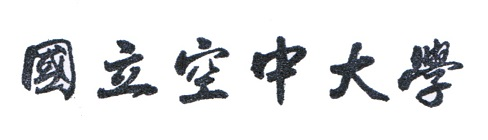 國立空中大學